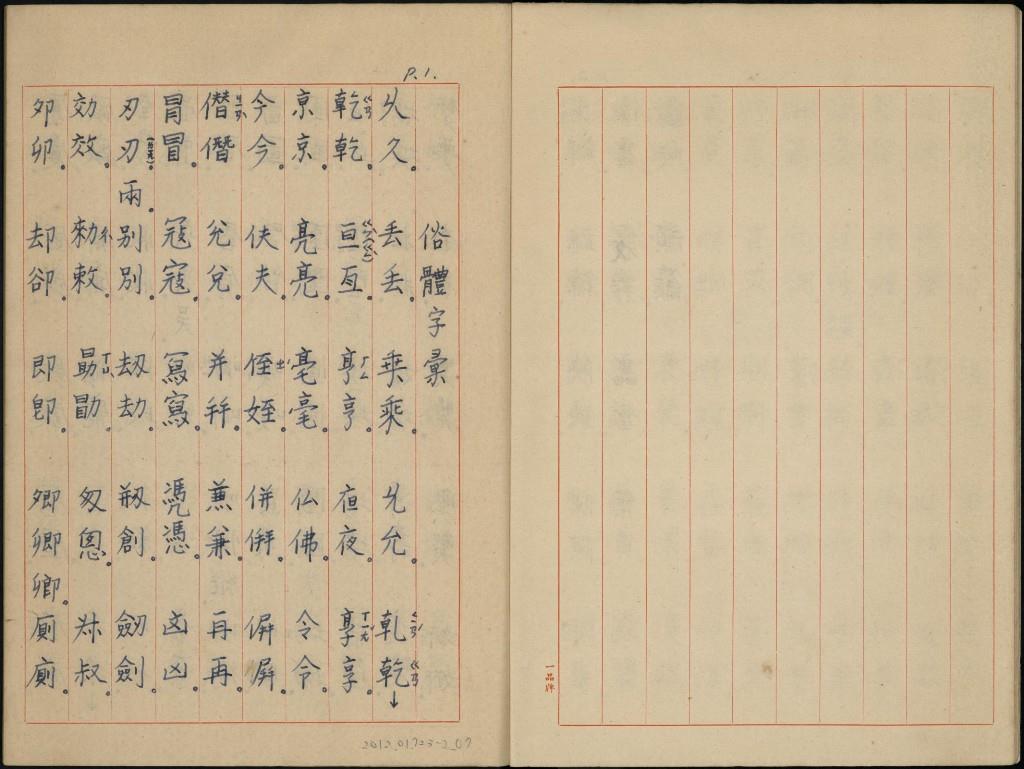 P.1.
俗體字彙
乆久。丟丟。乗乘。𠃔允。乹乾↓
乾ㄍㄢ乾。亘亙。亨ㄏㄥ亨。夜夜。享ㄒㄧㄤ享。
亰京。亮亮。毫毫。仏佛。令令。
今今。伕夫。侄姪。併倂。偋屛。
僣僭。兊兌。并幷。兼兼。再再。
冐冒。冦寇。冩寫。凴憑。凶凶。
刃刃。兩。别別。刼劫。剏創。劒劍。
効效。勅敕。勗勖。匆悤。叔叔。
夘卯。却卻。即卽。卿卿卿。厠廁。
一品牌
2012.01.0723-2_07